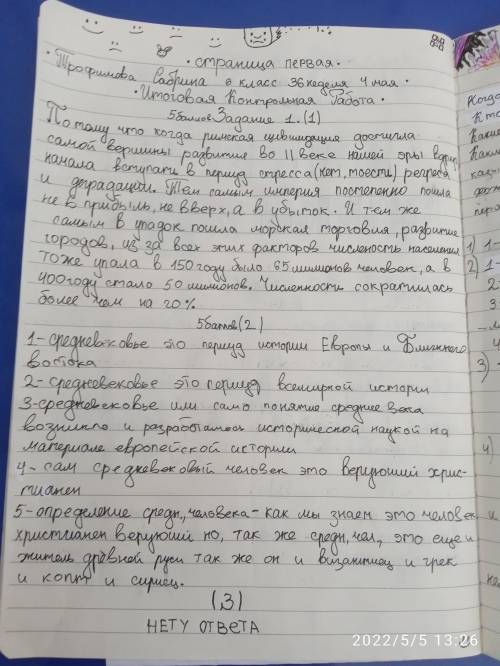 · страница первая ·
· Трофимова Сабрина 6 класс 36 неделя 4 мая ·
· Итоговая Контрольная Работа ·
5баллов Задание 1. (1)
Потому что когда римская цивилизация достигла
самой вершины развития во II веке нашей эры вдруг
начала вступать в период стресса (нет, тоесть) регреса
и деградации. Тем самым империя постепенно пошла
не в прибыль, не вверх, а в убыток. И тем же
самым в упадок пошла морская торговля, развитие
городов, из за всех этих факторов численость населения
тоже упала в 150 году было 65 милионов человек, а в
400 году стало 50 милионов. Численность сократилась
более чем на 20%.
5баллов (2)
1-средневековье это период истории Европы и Ближнего
востока
2-средневековье это период всемирной истории
3-средневековье или само понятие средние века
возникло и разработалось исторической наукой на
материале европейской истории
4-сам средневековый человек это верующий хрис-
тианен
5-определение средн, человека - как мы знаем это человек
христианен верующий но, так же средн, чел, это ещё и
житель древней руси так же он и византиец и грек
и копт и сириец.
(3)
НЕТУ ОТВЕТА
2022/5/5 13:26